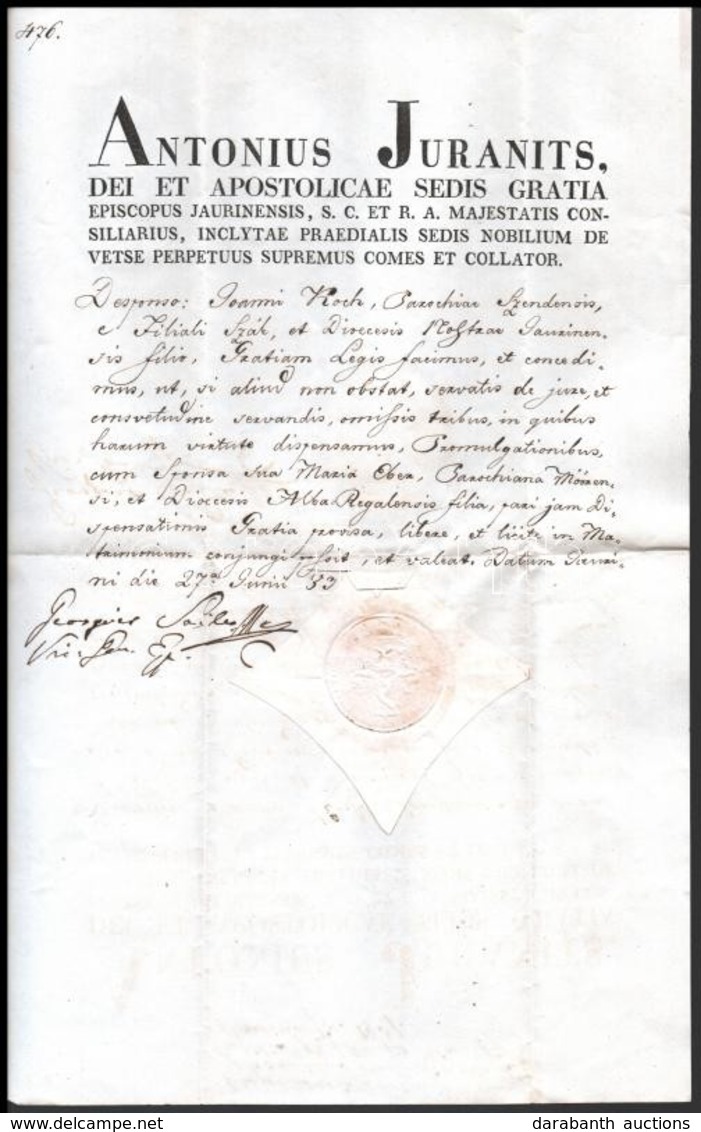 476.
ANTONIUS JURANITS,
DEI ET APOSTOLICAE SEDIS GRATIA
EPISCOPUS JAURINENSIS, S. C. ET R. A. MAJESTATIS CON-
SILIARIUS, INCLYTAE PRAEDIALIS SEDIS NOBILIUM DE
VETSE PERPETUUS SUPREMUS COMES ET COLLATOR.
Desponso: Joanni Koch, Parochiae Szendensis,
e Filiali Szák, et Dioecesis Nostrae Jaurinen-
sis filio, Gratiam Legis facimus, et concedi-
mus, ut, si aliud non obstat, servatis de jure, et
consvetudine servandis, omissis tribus, in quibus
harum virtute dispensamus, Promulgationibus,
cum Sponsa sua Maria Eber, Parochiana Moren-
si, et Dioecesis Alba Regalensis filia, pari jam Di-
spensationis Gratia provisa, libere, et licite in Ma-
trimonium conjungi possit, et valeat. Datum Jauri-
ni die 27a Junii
Georgius
darabanth auctions